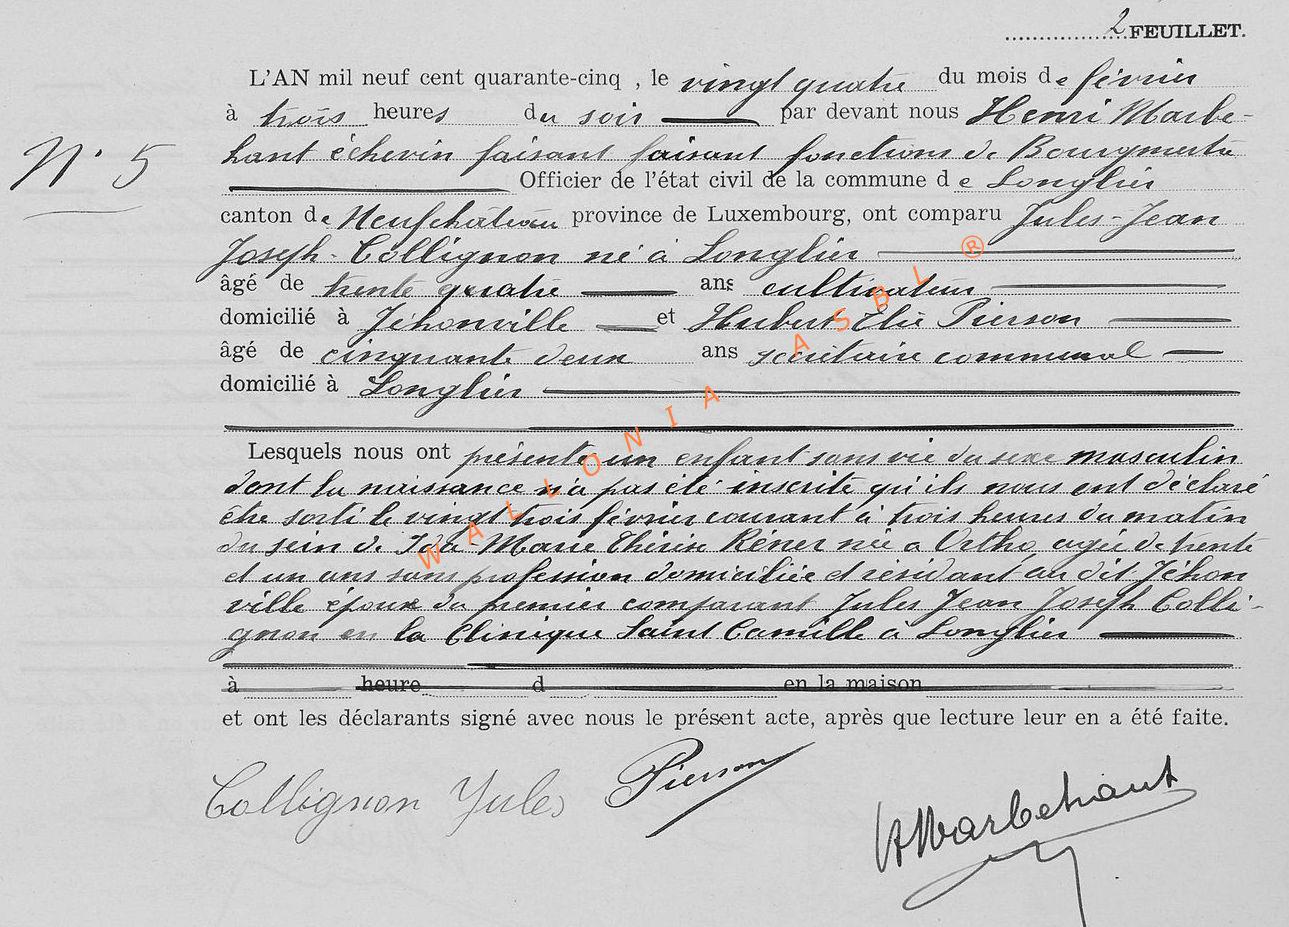 2 FEUILLET.
L'AN mil neuf cent quarante-cinq , le vingt quatre du mois de février
à trois heures du soir par devant nous Henri Marbe-
N° 5
hant échevin faisant faisant fonctions de Bourgmestre
Officier de l'état civil de la commune de Longlier
canton de Neufchâteau province de Luxembourg, ont comparu Jules-Jean
Joseph-Collignon né à Longlier
âgé de trente quatre ans cultivateur
domicilié à Jéhonville et Hubert Elie Pierson
âgé de cinquante deux ans secrétaire communal
domicilié à Longlier
Lesquels nous ont présenté un enfant sans vie du sexe masculin
dont la naissance n'a pas été inscrite qu'ils nous ont déclaré
être sorti le vingt trois février courant à trois heures du matin
du sein de Ida-Marie Thérèse Réner née à Ortho agée de trente
et un ans sans profession domiciliée et résidant au dit Jéhon
ville épouse du premier comparant Jules Jean Joseph Colli-
gnon en la Clinique Saint Camille à Longlier
à heure d en la maison
et ont les déclarants signé avec nous le présent acte, après que lecture leur en a été faite.
Collignon Jules Pierson
H Marbehant
WALLONIA ASBL ®